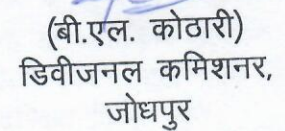 (बी.एल. कोठारी)
डिवीजनल कमिशनर,
जोधपुर